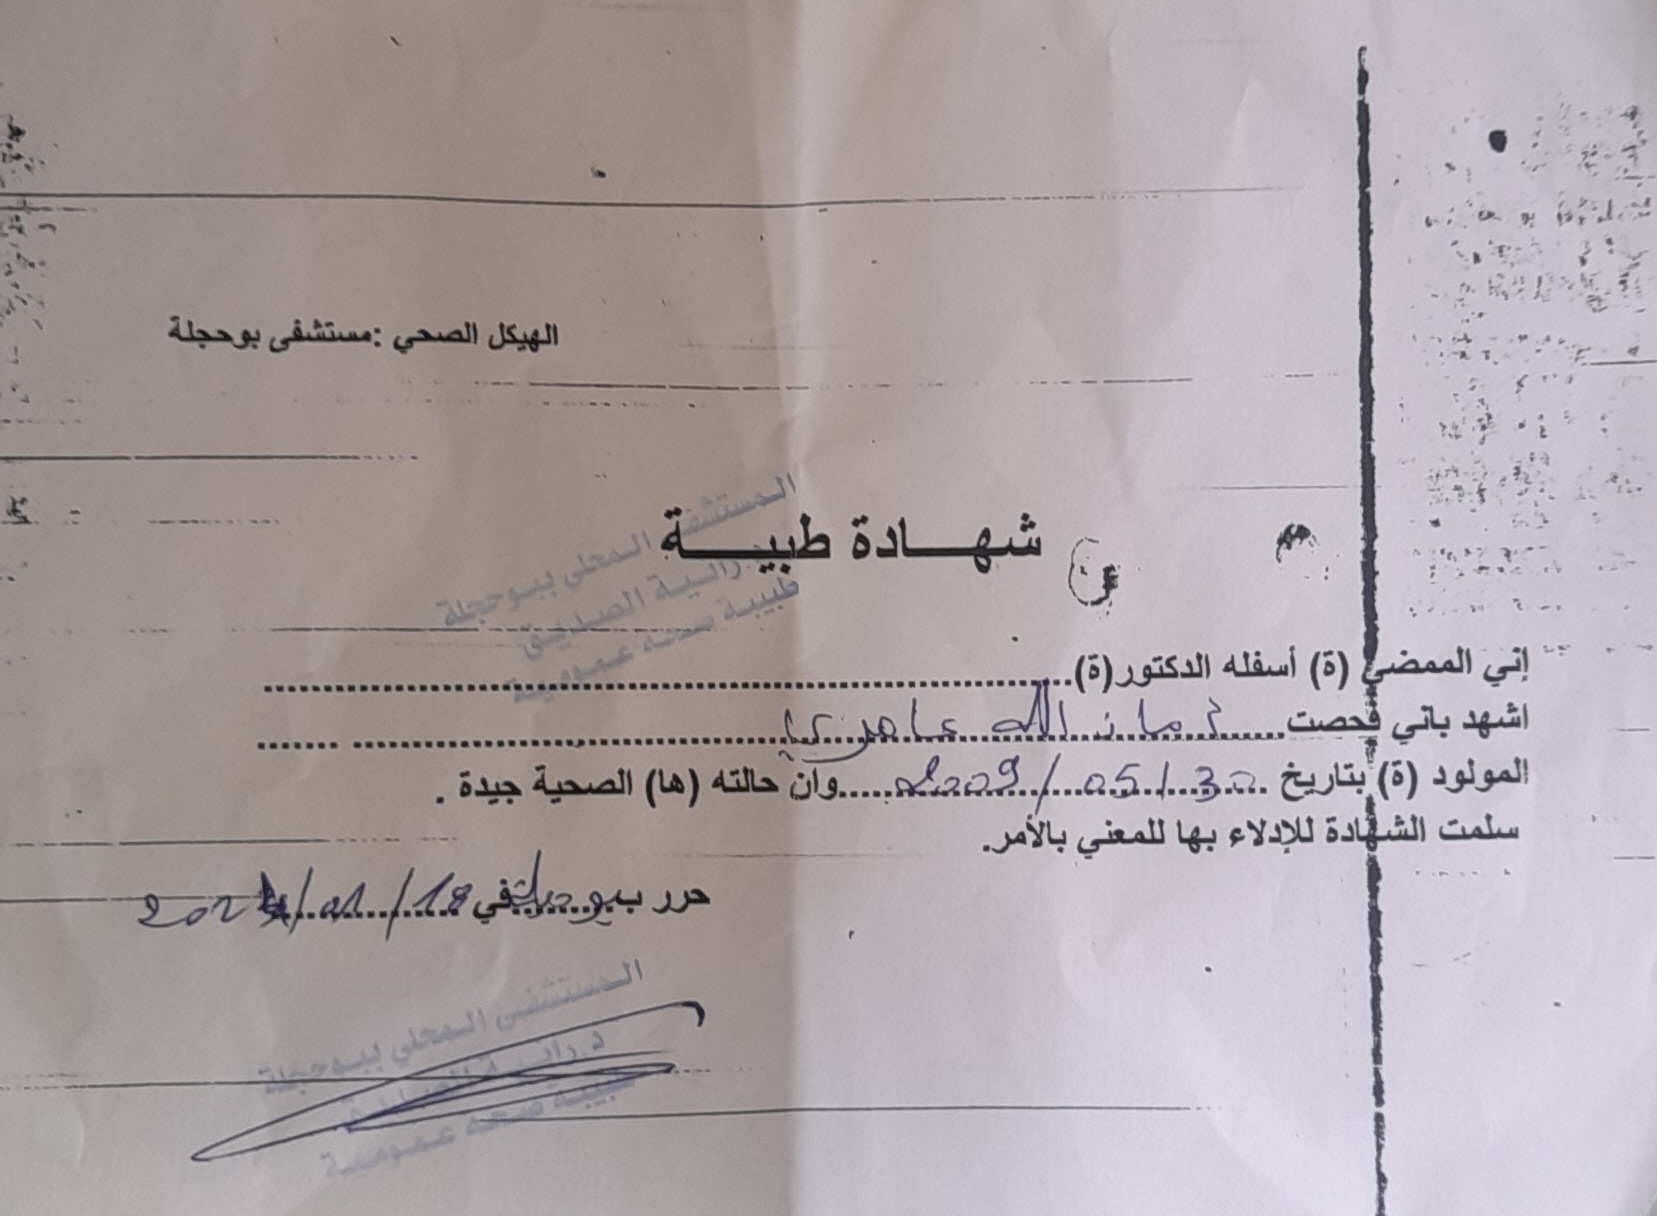 الهيكل الصحي :مستشفى بوحجلة
شهـــادة طبيـــة
المستشفى المحلي ببوحجلة
د.رانية الصديق
طبيبة صحة عمومية
إني الممضي (ة) أسفله الدكتور(ة)
اشهد باني فحصت أمان الله عامري
المولود (ة) بتاريخ 30/05/2009 وان حالته (ها) الصحية جيدة .
سلمت الشهادة للإدلاء بها للمعني بالأمر.
حرر ب بوحجلة في 18/01/2024
المستشفى المحلي ببوحجلة
طبيبة صحة عمومية